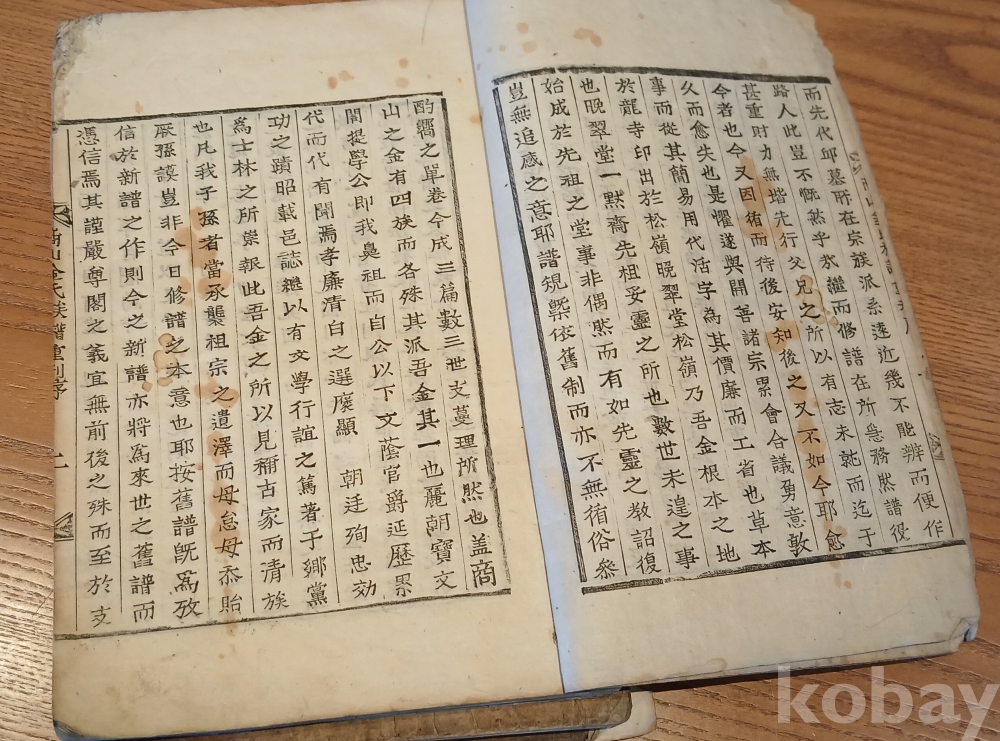 而先代邱墓所在宗族派系遠近幾不能辨而便作
路人此豈不慨然乎哉繼而修譜在所急務然譜役
甚重財力無堦先行父兄之所以有志未就而迄于
今者也今又因循而待後安知後之又不如今耶愈
久而愈失也是懼遂與開善諸宗累會合議勇意敦
事而從其簡易用代活字為其價廉而工省也草本
於龍寺印出於松嶺晚翠堂松嶺乃吾金根本之地
也晚翠堂一默齋先祖妥靈之所也數世未遑之事
始成於先祖之堂事非偶然而有如先靈之教詔復
豈無追感之意耶譜規槩依舊制而亦不無循俗參
酌嚮之單卷今成三篇數三世支蔓理所然也盖商
山之金有四族而各殊其派吾金其一也麗朝寶文
閣提學公即我鼻祖而自公以下文蔭官爵延歷累
代而代有聞焉孝廉清白之選褒顯 朝廷殉忠效
功之蹟昭載邑誌繼以有文學行誼之篤著于鄉黨
為士林之所崇報此吾金之所以見稱古家而清族
也凡我子孫者當承襲祖宗之遺澤而毋怠毋忝貽
厥孫謨豈非今日修譜之本意也耶按舊譜旣為攷
信於新譜之作則今之新譜亦將為來世之舊譜而
憑信焉其謹嚴尊閣之義宜無前後之殊而至於支
商山金氏族譜重刊序
二
kobay